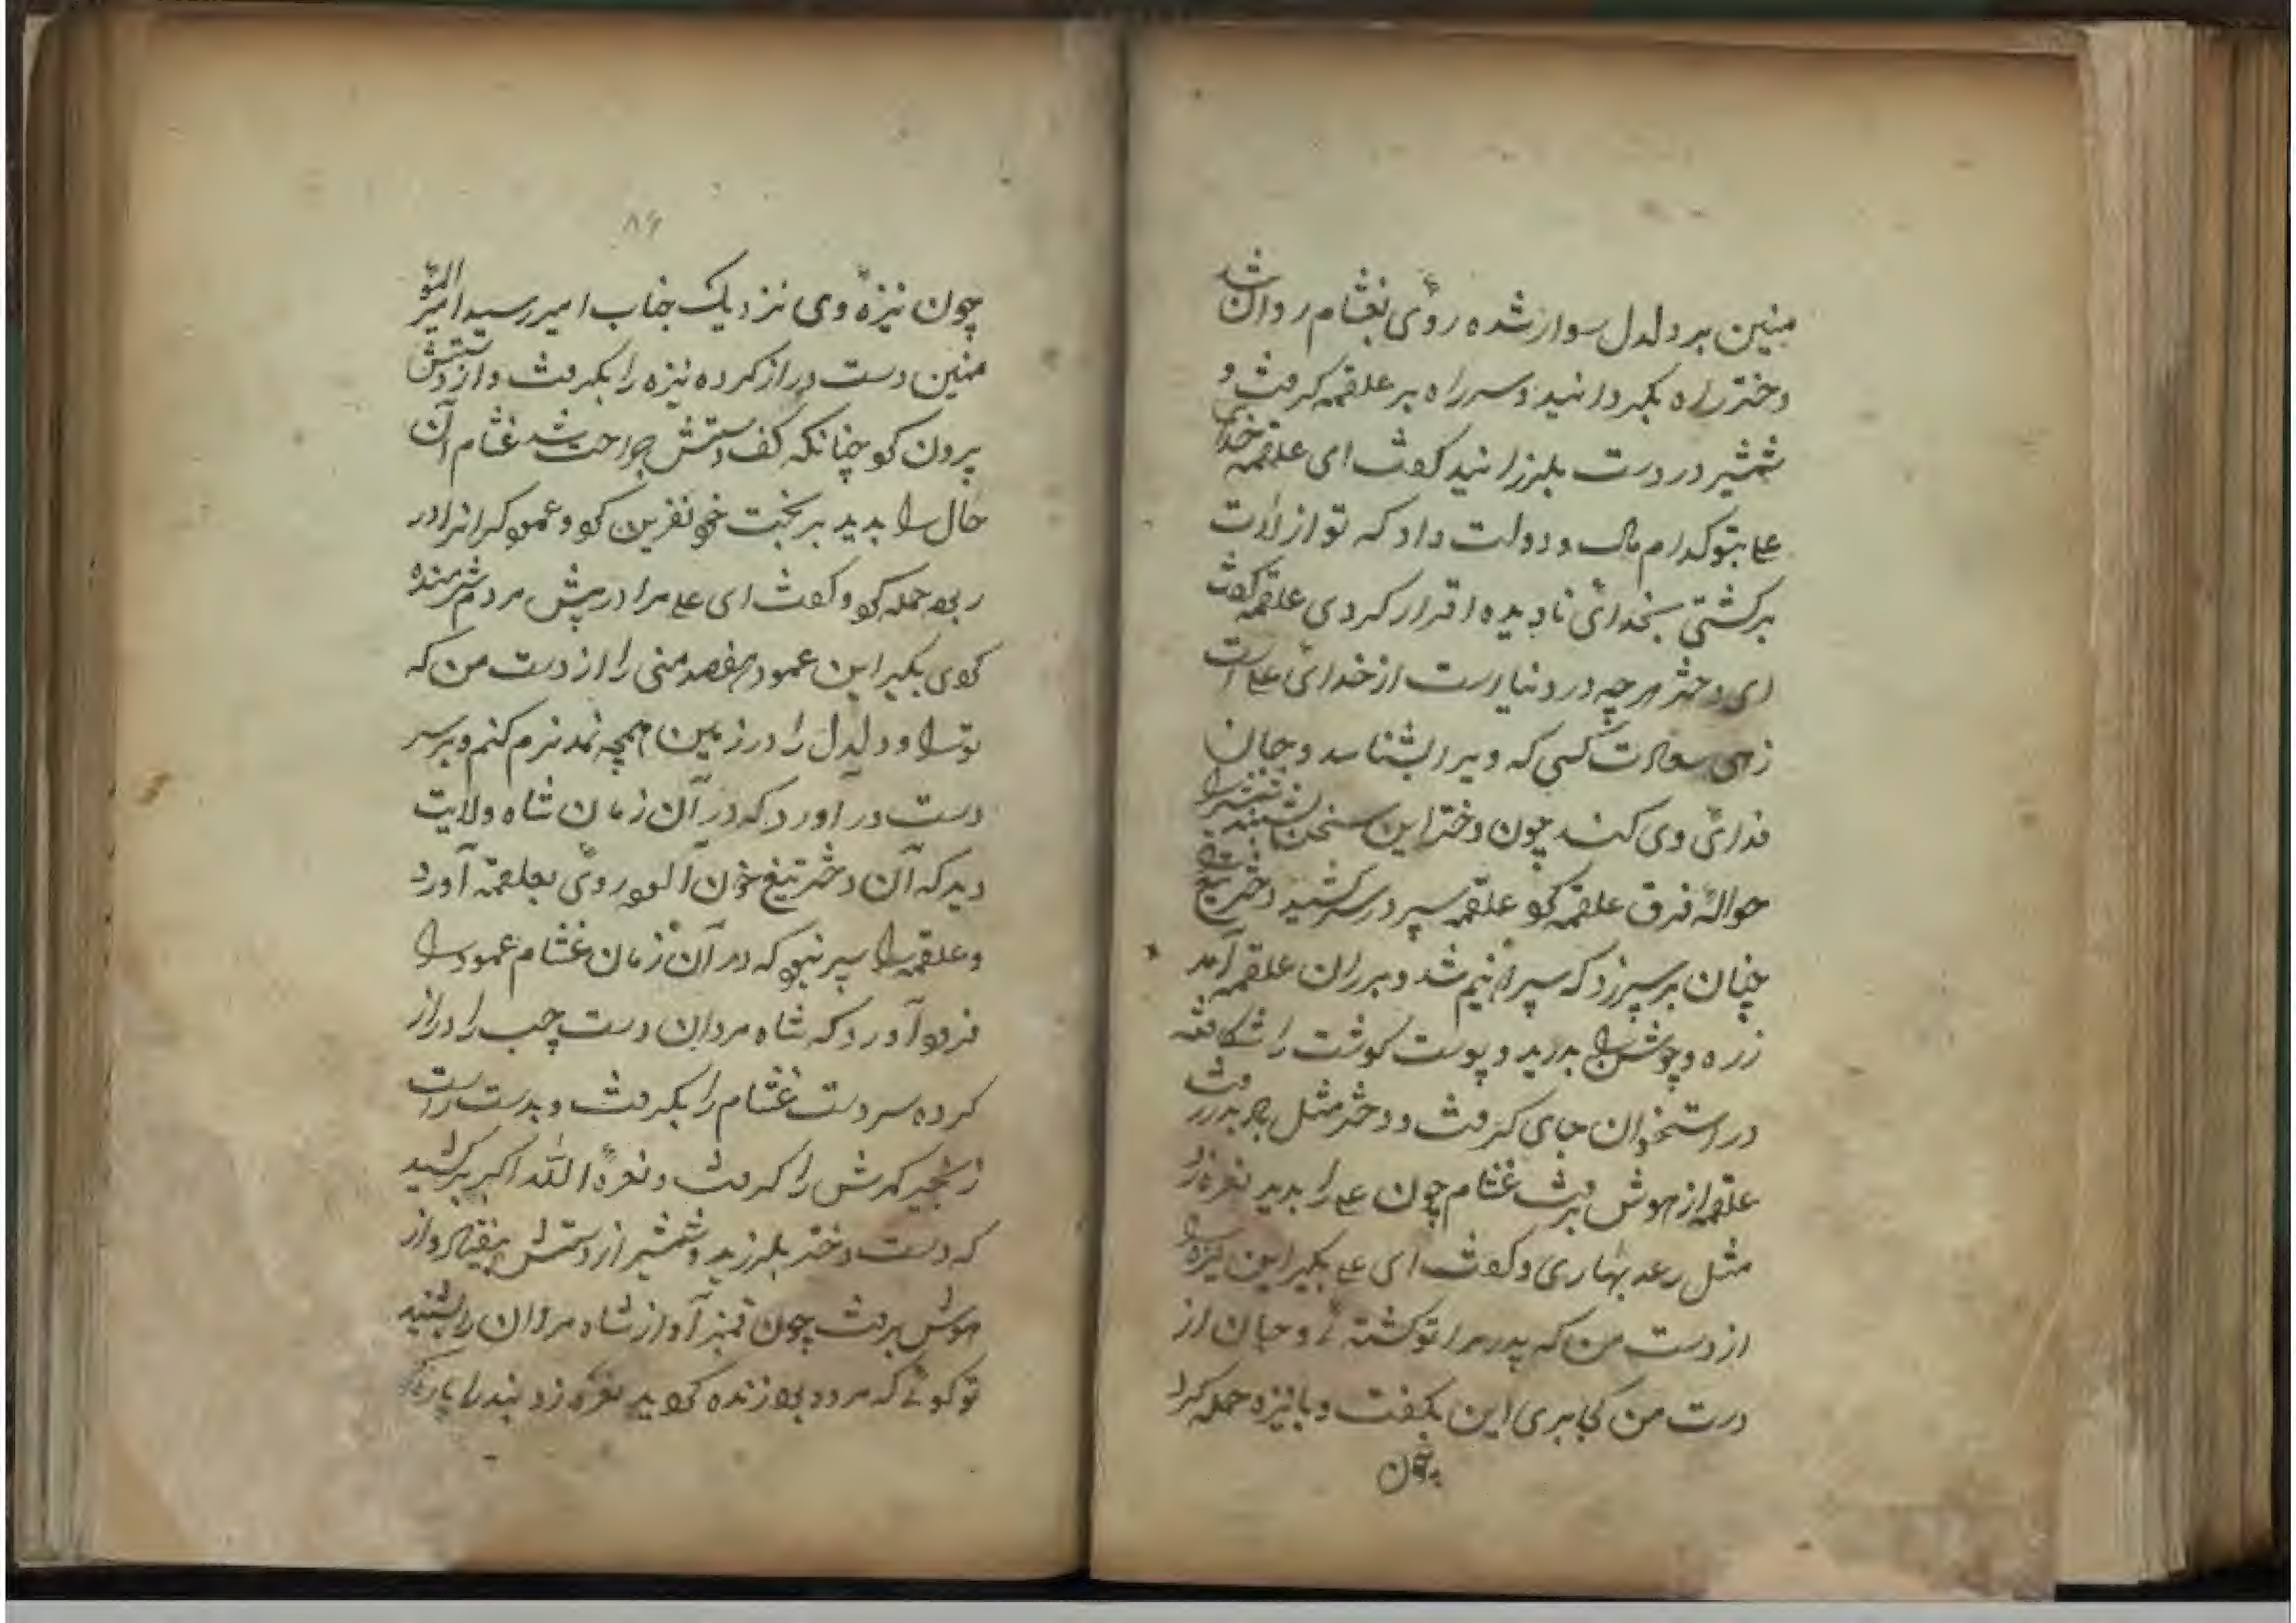 منین بر دلدل سوار شده روئی بغشام روان شد
دختر راه بکردانید و سر راه بر علقمه کرفت و
شمشیر در دست بلرزانید کفت ای علقمه خدای
علی بتو کدام مال و دولت داد که تو از لات
برکشتی بخدائی نادیده اقرار کردی علقمه کفت
ای دختر هرچه در دنیا است از خدائی علی است
زهی سعادت کسی که ویرا بشناسد و جان
فدائی وی کند چون دختر این سخن بشنید تیغ را
حوالهٔ فرق علقمه کرد علقمه سپر در سر کشید دختر تیغ
چنان بر سپر زد که سپر دو نیم شد و بر ران علقمه آمد
زره و جوشن را بدرید و پوست کوشت را شکافته
در استخوان جای کرفت و دختر مثل باد بدر رفت
علقمه از هوش برفت غشام چون علی را بدید نعره زد
مثل رعد بهاری و کفت ای علی بکیر این نیزه را
از دست من که پدر مرا تو کشتهٔ و جان از
دست من کجا بری این بکفت و با نیزه حمله کرد
چون
۸۶
چون نیزهٔ وی نزدیک جناب امیر رسید امیر المؤ
منین دست دراز کرده نیزه را بکرفت و از دستش
برون کرد چنانکه کف دستش جراحت شد غشام آن
حال را بدید بر بخت خود نفرین کرد و عمود کران را در
ربود حمله کرد و کفت ای علی مرا در پیش مردم شرمنده
کردی بکیر این عمود هفصد منی را از دست من که
ترا و دلدل را در زمین همچه نمد نرم کنم و بر سر
دست در آورد که در آن زمان شاه ولایت
دید که آن دختر تیغ خون آلود روئی بعلقمه آورد
و علقمه را سپر نبود که در آن زمان غشام عمود را
فرود آورد که شاه مردان دست چپ را دراز
کرده سر دست غشام را بکرفت و بدست راست
زنجیر کمرش را کرفت و نعرهٔ الله اکبر بر کشید
که دست دختر بلرزید و شمشیر از دستش بیفتاد و از
هوش برفت چون قنبر آواز شاه مردان را بشنید
تو کوئی که مرده بود زنده کردید نعره زد بند را پاره